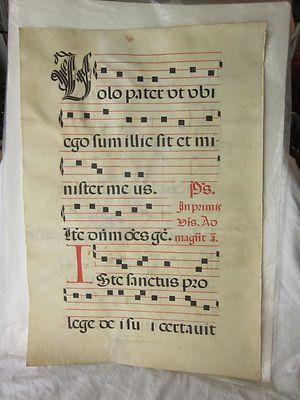 Volo pater vt vbi
ego sum illic sit et mi-
nister me us. Ps.
In primis
Vis. Ad
Ite dn̄m oēs gē. magn̄t ā.
Iste sanctus pro
lege de i su i certauit